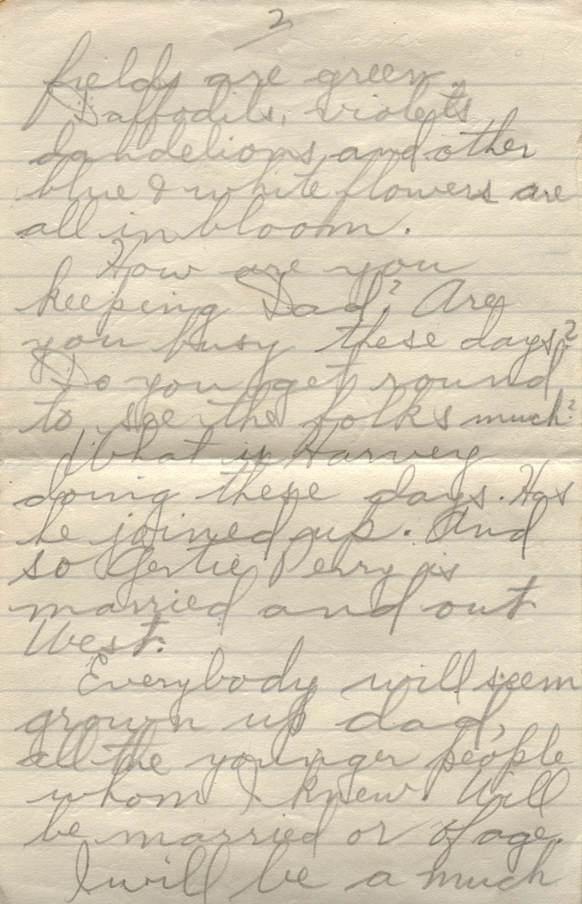 2
fields are green.
Daffodils, violets
dandelions, and other
blue & white flowers are
all in bloom.
How are you
keeping Dad? Are
you busy these days?
Do you get round
to see the folks much?
What is Harvey
doing these days. Has
he joined up. And
so Gertie Perry is
married and out
West.
Everybody will seem
grown up dad,
all the younger people
whom I knew. Will
be married or of age.
I will be a much